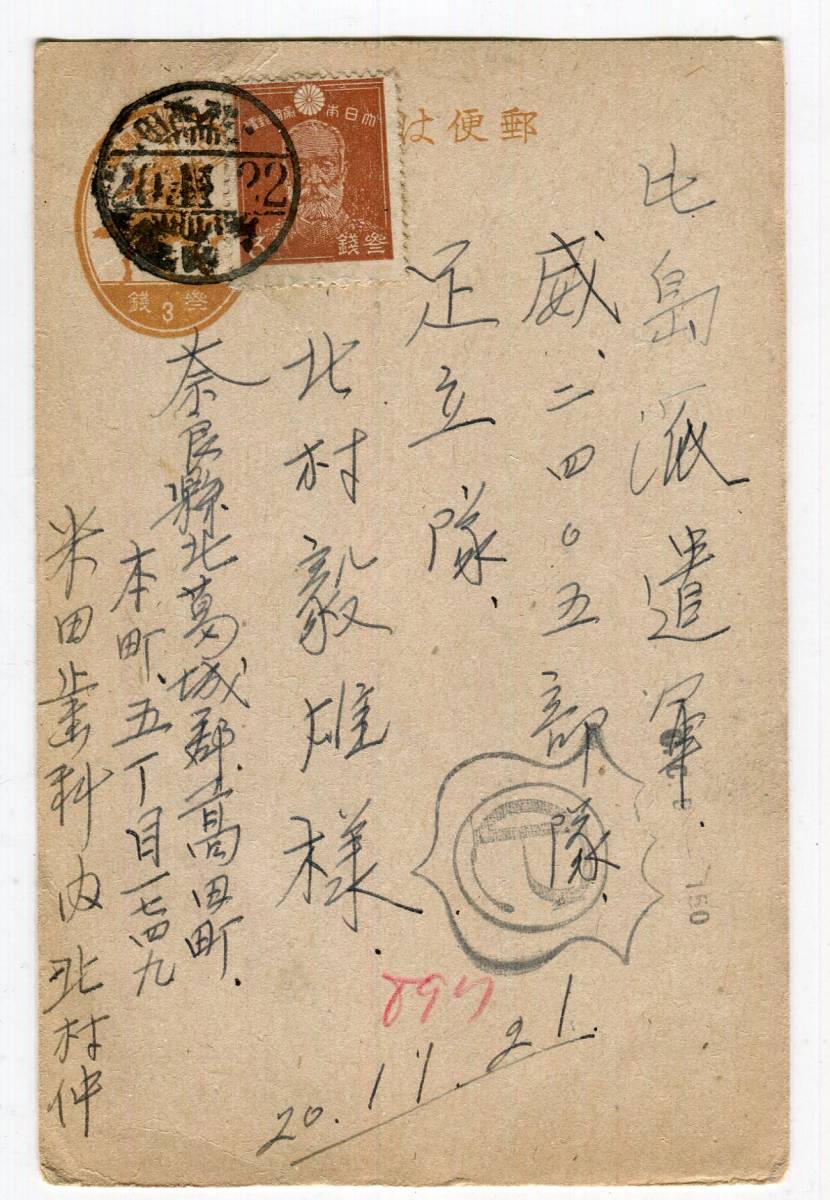 郵便は
大日本帝國郵便
參錢
參錢
3
22
比島派遣軍.
威、二四〇五部隊.
足立隊.
北村毅雄様.
奈良縣北葛城郡高田町.
本町、五丁目一七四九
米田歯科内北村仲
150
20.11.21.